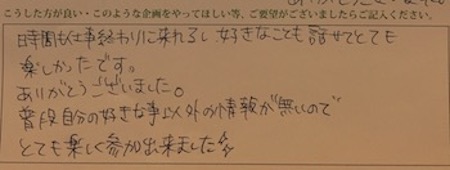 こうした方が良い・このような企画をやってほしい等、ご要望がございましたらご記入ください。
時間も仕事終わりに来れるし好きなことも話せてとても
楽しかったです。
ありがとうございました。
普段自分の好きな事以外の情報が無いので
とても楽しく参加出来ました